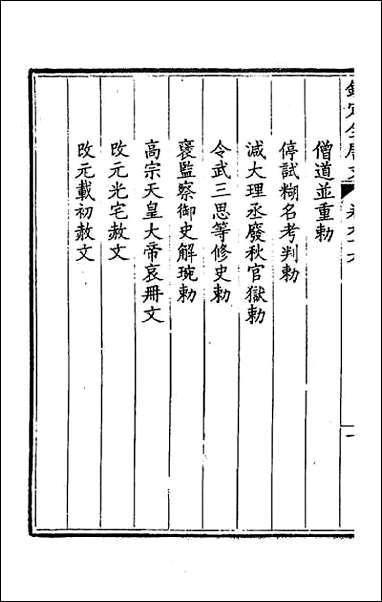 僧道並重勅
停試糊名考判勅
減大理丞廢秋官獄勅
令武三思等修史勅
褒監察御史解琬勅
高宗天皇大帝哀冊文
改元光宅赦文
改元載初赦文